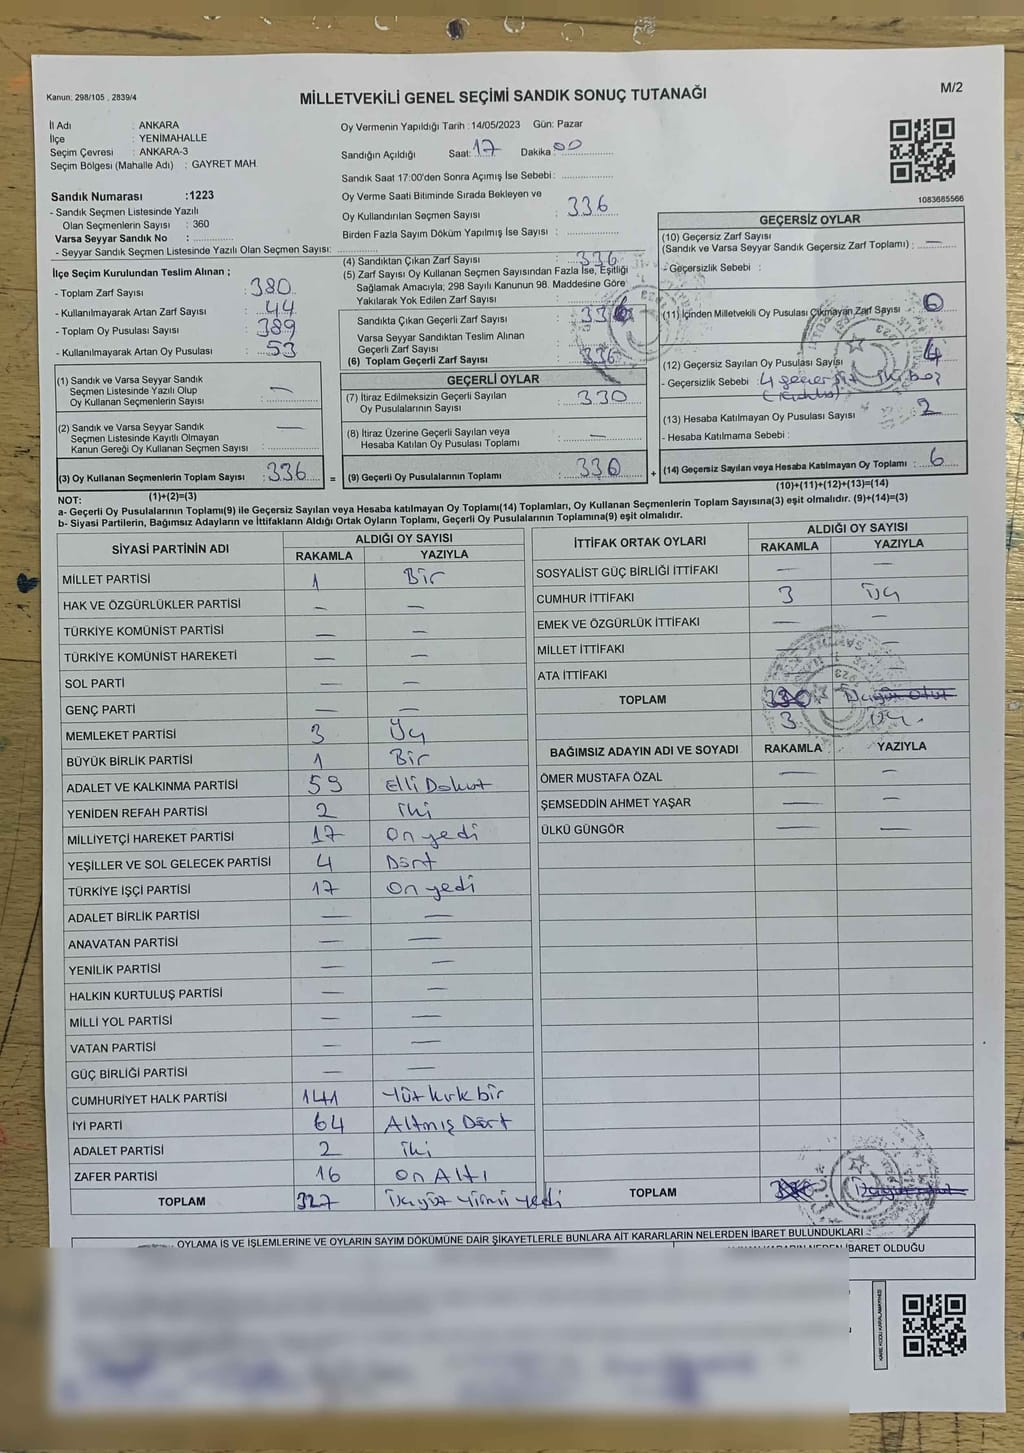 Kanun: 298/105 , 2839/4
MİLLETVEKİLİ GENEL SEÇİMİ SANDIK SONUÇ TUTANAĞI
M/2
İl Adı : ANKARA
İlçe : YENİMAHALLE
Seçim Çevresi : ANKARA-3
Seçim Bölgesi (Mahalle Adı) : GAYRET MAH.
Sandık Numarası :1223
- Sandık Seçmen Listesinde Yazılı
Olan Seçmenlerin Sayısı : 360
Varsa Seyyar Sandık No :
- Seyyar Sandık Seçmen Listesinde Yazılı Olan Seçmen Sayısı:
Oy Vermenin Yapıldığı Tarih :14/05/2023 Gün: Pazar
Sandığın Açıldığı Saat: 17 Dakika 00
Sandık Saat 17:00'den Sonra Açımış İse Sebebi :
Oy Verme Saati Bitiminde Sırada Bekleyen ve
Oy Kullandırılan Seçmen Sayısı : 336
Birden Fazla Sayım Döküm Yapılmış İse Sayısı :
1083685566
İlçe Seçim Kurulundan Teslim Alınan ;
- Toplam Zarf Sayısı : 380
- Kullanılmayarak Artan Zarf Sayısı : 44
- Toplam Oy Pusulası Sayısı : 389
- Kullanılmayarak Artan Oy Pusulası : 53
(1) Sandık ve Varsa Seyyar Sandık
Seçmen Listesinde Yazılı Olup
Oy Kullanan Seçmenlerin Sayısı : —
(2) Sandık ve Varsa Seyyar Sandık
Seçmen Listesinde Kayıtlı Olmayan
Kanun Gereği Oy Kullanan Seçmen Sayısı : —
(3) Oy Kullanan Seçmenlerin Toplam Sayısı : 336
(4) Sandıktan Çıkan Zarf Sayısı : 336
(5) Zarf Sayısı Oy Kullanan Seçmen Sayısından Fazla İse, Eşitliği
Sağlamak Amacıyla; 298 Sayılı Kanunun 98. Maddesine Göre
Yakılarak Yok Edilen Zarf Sayısı :
Sandıkta Çıkan Geçerli Zarf Sayısı : 336
Varsa Seyyar Sandıktan Teslim Alınan
Geçerli Zarf Sayısı :
(6) Toplam Geçerli Zarf Sayısı : 336
GEÇERLİ OYLAR
(7) İtiraz Edilmeksizin Geçerli Sayılan
Oy Pusulalarının Sayısı : 330
(8) İtiraz Üzerine Geçerli Sayılan veya
Hesaba Katılan Oy Pusulası Toplamı : —
= (9) Geçerli Oy Pusulalarının Toplamı : 330
GEÇERSİZ OYLAR
(10) Geçersiz Zarf Sayısı
(Sandık ve Varsa Seyyar Sandık Geçersiz Zarf Toplamı) : —
- Geçersizlik Sebebi :
(11) İçinden Milletvekili Oy Pusulası Çıkmayan Zarf Sayısı : 0
(12) Geçersiz Sayılan Oy Pusulası Sayısı : 4
- Geçersizlik Sebebi : 4 geçersiz
(13) Hesaba Katılmayan Oy Pusulası Sayısı : 2
- Hesaba Katılmama Sebebi :
+ (14) Geçersiz Sayılan veya Hesaba Katılmayan Oy Toplamı : 6
NOT: (1)+(2)=(3)
(10)+(11)+(12)+(13)=(14)
a- Geçerli Oy Pusulalarının Toplamı(9) ile Geçersiz Sayılan veya Hesaba katılmayan Oy Toplamı(14) Toplamları, Oy Kullanan Seçmenlerin Toplam Sayısına(3) eşit olmalıdır. (9)+(14)=(3)
b- Siyasi Partilerin, Bağımsız Adayların ve İttifakların Aldığı Ortak Oyların Toplamı, Geçerli Oy Pusulalarının Toplamına(9) eşit olmalıdır.
SİYASİ PARTİNİN ADI ALDIĞI OY SAYISI
RAKAMLA YAZIYLA
MİLLET PARTİSİ 1 Bir
HAK VE ÖZGÜRLÜKLER PARTİSİ — —
TÜRKİYE KOMÜNİST PARTİSİ — —
TÜRKİYE KOMÜNİST HAREKETİ — —
SOL PARTİ — —
GENÇ PARTİ — —
MEMLEKET PARTİSİ 3 Üç
BÜYÜK BİRLİK PARTİSİ 1 Bir
ADALET VE KALKINMA PARTİSİ 59 Elli Dokuz
YENİDEN REFAH PARTİSİ 2 iki
MİLLİYETÇİ HAREKET PARTİSİ 17 On yedi
YEŞİLLER VE SOL GELECEK PARTİSİ 4 Dört
TÜRKİYE İŞÇİ PARTİSİ 17 On yedi
ADALET BİRLİK PARTİSİ — —
ANAVATAN PARTİSİ — —
YENİLİK PARTİSİ — —
HALKIN KURTULUŞ PARTİSİ — —
MİLLİ YOL PARTİSİ — —
VATAN PARTİSİ — —
GÜÇ BİRLİĞİ PARTİSİ — —
CUMHURİYET HALK PARTİSİ 141 Yüz kırk bir
İYİ PARTİ 64 Altmış Dört
ADALET PARTİSİ 2 iki
ZAFER PARTİSİ 16 On Altı
TOPLAM 327 Üçyüz yirmi yedi
İTTİFAK ORTAK OYLARI ALDIĞI OY SAYISI
RAKAMLA YAZIYLA
SOSYALİST GÜÇ BİRLİĞİ İTTİFAKI — —
CUMHUR İTTİFAKI 3 Üç
EMEK VE ÖZGÜRLÜK İTTİFAKI — —
MİLLET İTTİFAKI — —
ATA İTTİFAKI
TOPLAM 330 Üçyüz Otuz
3 Üç
BAĞIMSIZ ADAYIN ADI VE SOYADI RAKAMLA YAZIYLA
ÖMER MUSTAFA ÖZAL — —
ŞEMSEDDİN AHMET YAŞAR — —
ÜLKÜ GÜNGÖR — —
TOPLAM
OYLAMA İŞ VE İŞLEMLERİNE VE OYLARIN SAYIM DÖKÜMÜNE DAİR ŞİKAYETLERLE BUNLARA AİT KARARLARIN NELERDEN İBARET BULUNDUKLARI
İBARET OLDUĞU
KARE KODU KARALAMAYINIZ